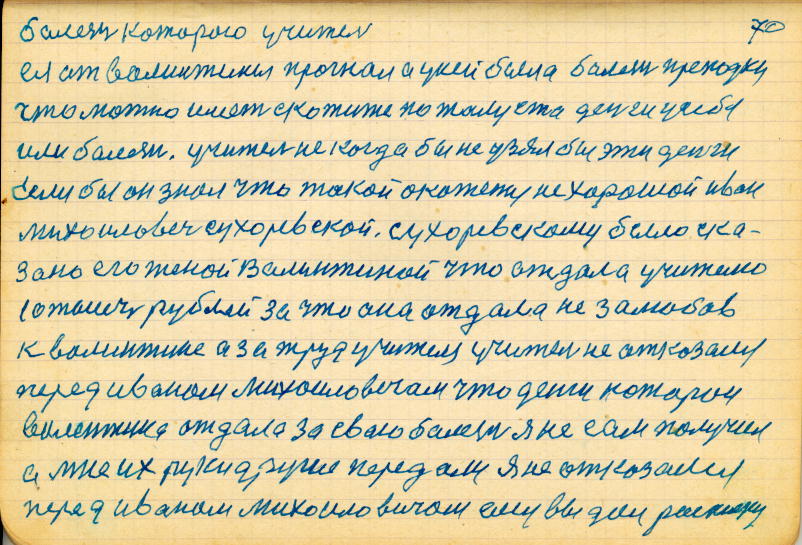 балезн которого учител 70
ея от валинтины прогнал а укей была балезн преподку
что можно имет скотите по жалуста денги учебе
или балезн. учител не когда бы не узял бы эти денги
если бы он знал что такой окажету не хорошой иван
михоиловеч сухоревской. сухоревскому было ска-
зано его женой Валинтиной что отдала учителю
10 тысеч рублей за что она отдала не за любов
к валинтине а за труд учителя учител не отказаля
перед иваном михоиловечам что денги которои
валентина отдала за свою балезн я не сам получил
а мне их руки другие передали я не отказался
перед иваном михоиловичом ему выдал